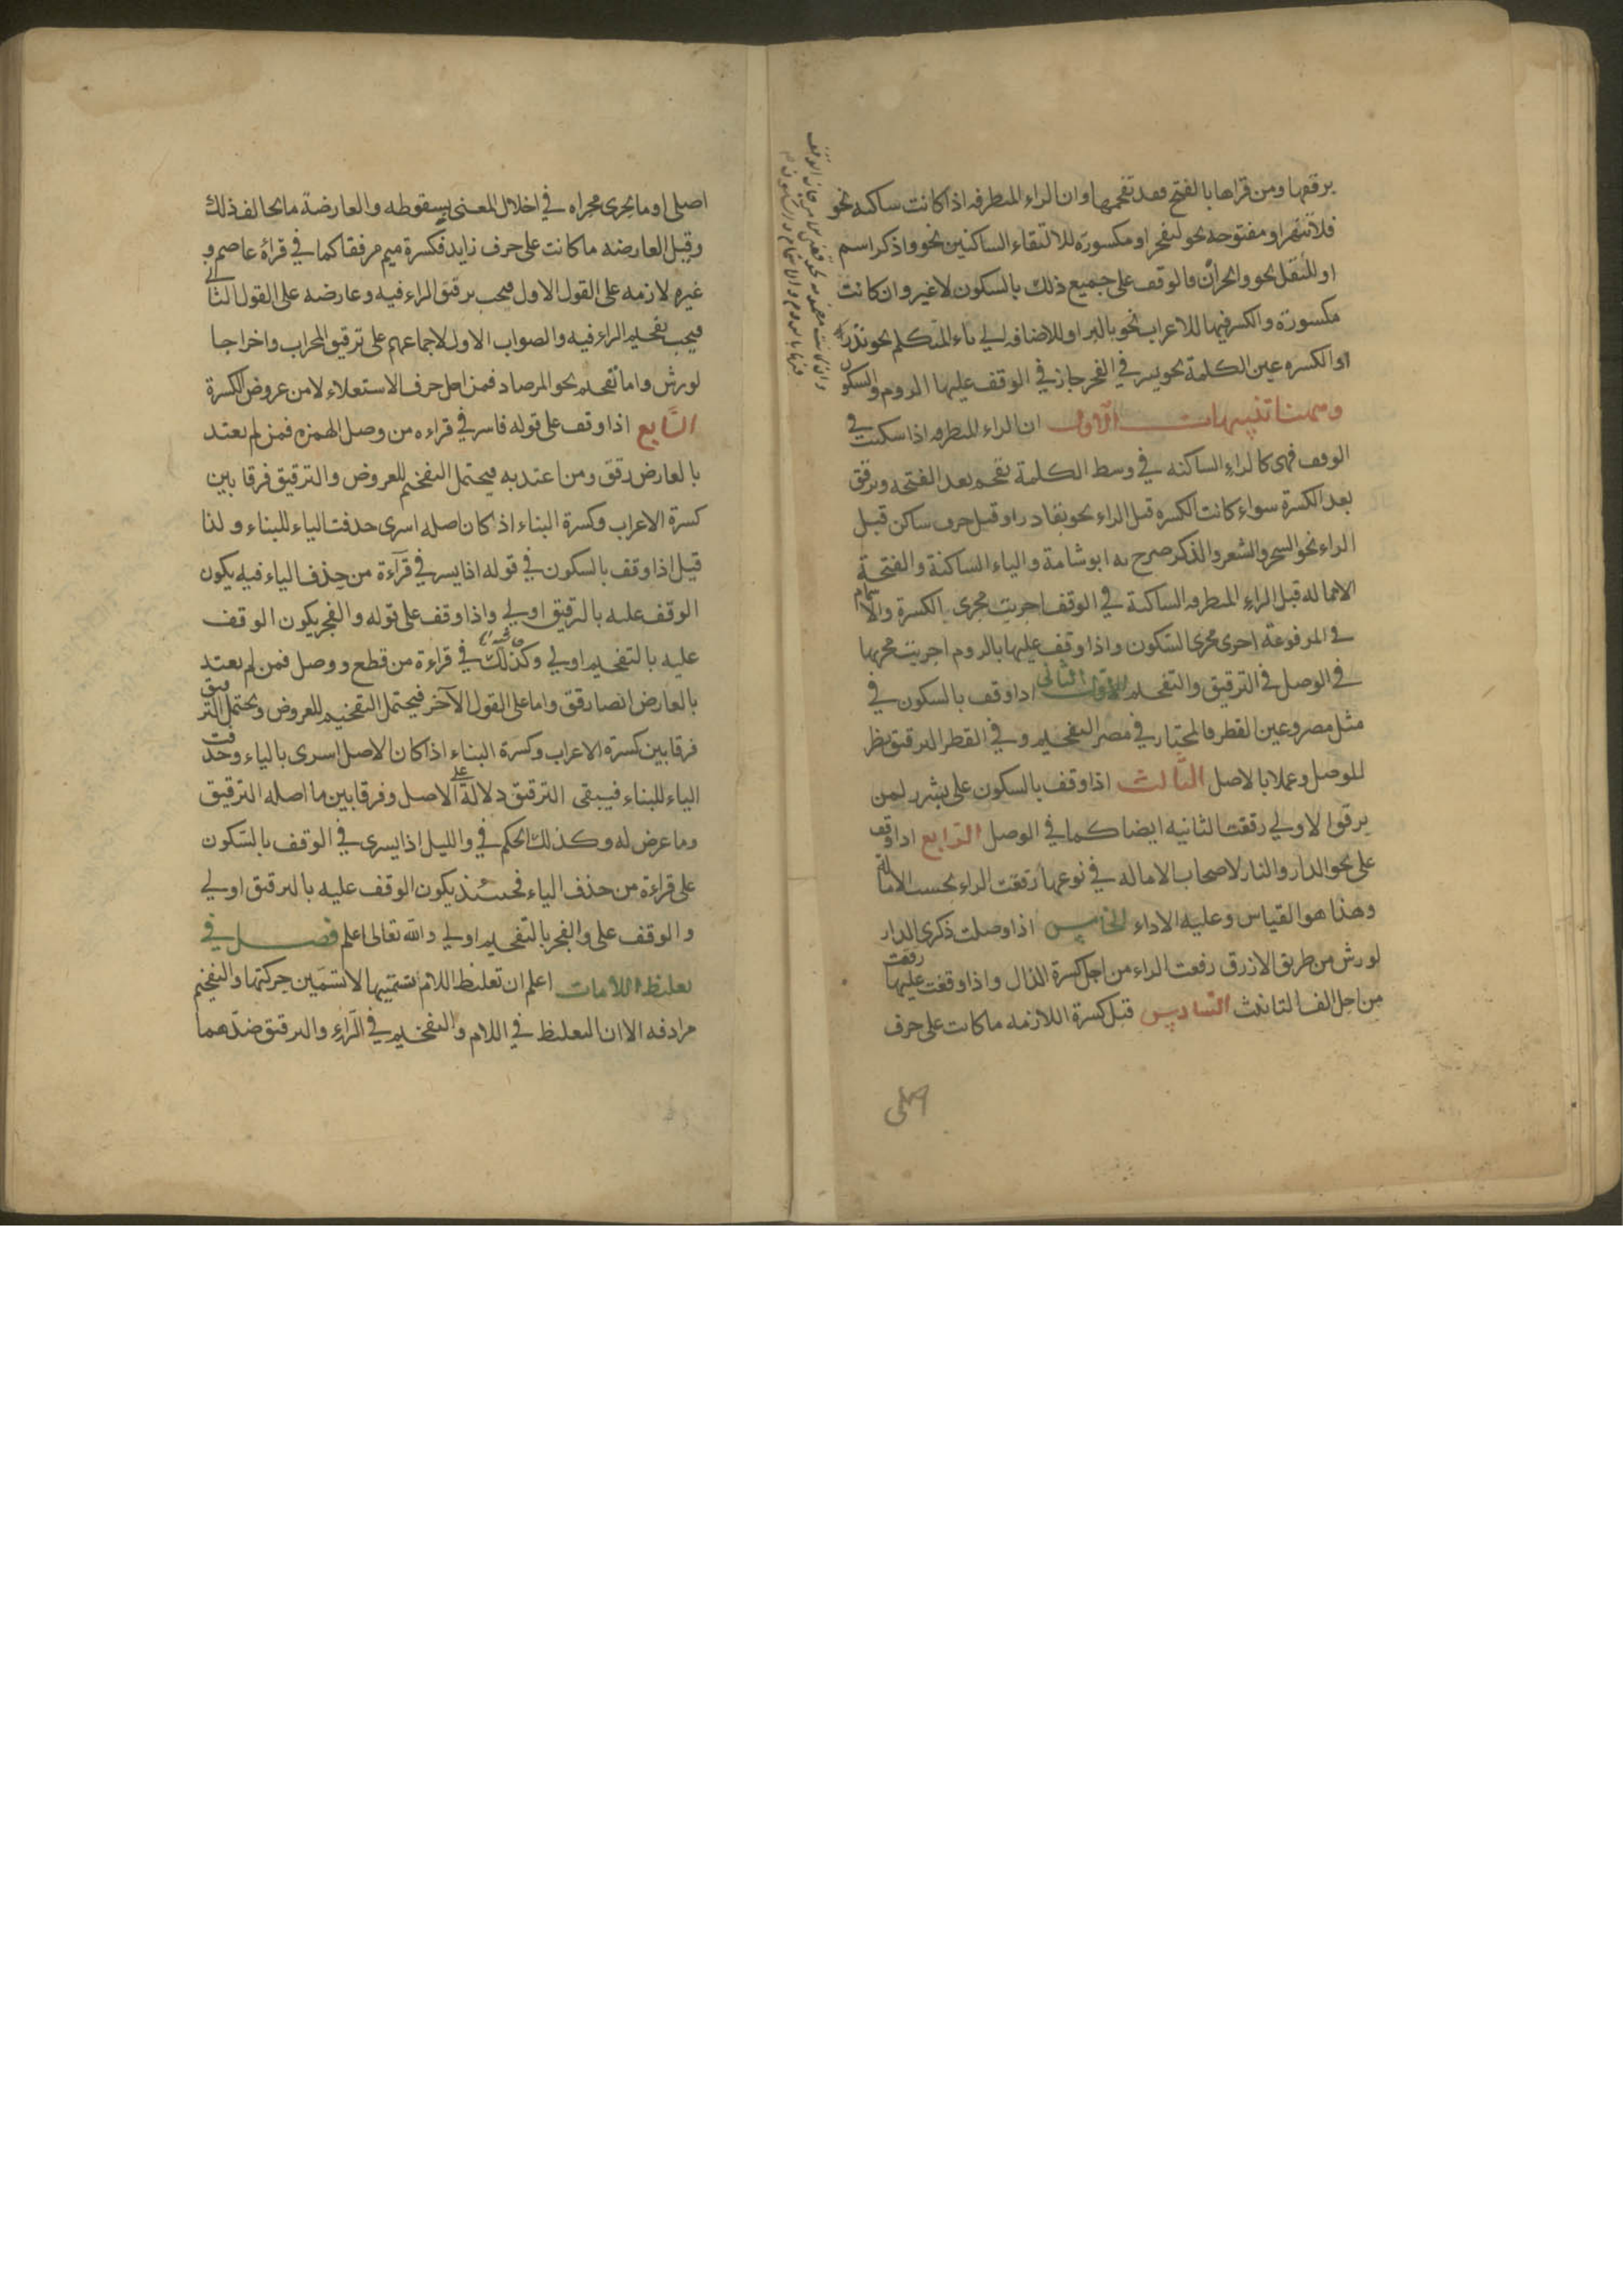 برققها ومن قراها بالفتح فقد تفخمها وان الراء المتطرفه اذا كانت ساكنه نحو
فلا تنهر او مفتوحه نحو ليفجر او مكسورة للالتقاء الساكنين نحو واذكر اسم
او للنقل نحو وانحر ان فالوقف على جميع ذلك بالسكون لا غير وان كانت
مكسورة والكسر فيها للاعراب نحو بالبر او للاضافه الى ياء المتكلم نحو نذر
او الكسره عين الكلمة نحو يسر في الفجر جاز في الوقف عليها الروم والسكون
وههنا تنبيهات الاول ان الراء المتطرفه اذا سكنت في
الوقف فهى كالراء الساكنه في وسط الكلمة تفخم بعد الفتحه وترقق
بعد الكسرة سواء كانت الكسره قبل الراء نحو بقادر او قبل حرف ساكن قبل
الراء نحو السحر والشعر والذكر صرح به ابو شامة والياء الساكنة والفتحة
الاماله قبل الراء المتطرفه الساكنة في الوقف اجريت مجرى الكسرة والاشمام
في المرفوعة اجرى مجرى السكون واذا وقف عليها بالروم اجريت مجريها
في الوصل في الترقيق والتفخيم الثانى اذا وقف بالسكون في
مثل مصر وعين القطر فالمختار في مصر التفخيم وفي القطر الترقيق نظر
للوصل وعملا بالاصل الثالث اذا وقف بالسكون على بشرر لمن
يرقق الاولى رققت الثانيه ايضا كما في الوصل الرابع اذا وقف
على نحو الدار والنار لاصحاب الاماله في نوعيها رققت الراء بحسب الامالة
وهذا هو القياس وعليه الاداء الخامس اذا وصلت ذكرى الدار
لورش من طريق الازرق رققت الراء من اجل كسرة الذال واذا وقفت عليها رققت
من اجل الف التانيث السادس قيل كسرة اللازمه ما كانت على حرف
اصلى
اصلى او ما يجرى مجراه في اخلال المعنى بسقوطه والعارضة ما يخالف ذلك
وقيل العارضه ما كانت على حرف زايد فكسرة ميم مرفقا كما في قراة عاصم و
غيره لازمه على القول الاول فيجب ترقيق الراء فيه وعارضه على القول الثانى
فيجب تفخيم الراء فيه والصواب الاول لاجماعهم على ترقيق المحراب واخراجا
لورش واما تفخيم نحو المرصاد فمن اجل حرف الاستعلاء لا من عروض الكسرة
السابع اذا وقف على قوله فاسر في قراءه من وصل الهمزه فمن لم يعتد
بالعارض رقق ومن اعتد به فيحتمل التفخيم للعروض والترقيق فرقا بين
كسرة الاعراب وكسرة البناء اذ كان اصله اسرى حذفت الياء للبناء ولذا
قيل اذا وقف بالسكون في قوله اذا يسر في قرآءة من حذف الياء فيه يكون
الوقف عليه بالترقيق اولى واذا وقف على قوله والفجر يكون الوقف
عليه بالتفخيم اولى وكذلك في قراءة من قطع ووصل فمن لم يعتد
بالعارض ايضا رقق واما على القول الآخر فيحتمل التفخيم للعروض ويحتمل الترقيق
فرقا بين كسرة الاعراب وكسرة البناء اذا كان الاصل اسرى بالياء وحذفت
الياء للبناء فيبقى الترقيق دلالة على الاصل وفرقا بين ما اصله الترقيق
وما عرض له وكذلك الحكم في والليل اذا يسرى في الوقف بالسكون
على قراءة من حذف الياء فحينئذ يكون الوقف عليه بالترقيق اولى
والوقف على والفجر بالتفخيم اولى والله تعالى اعلم فصل في
تغليظ اللامات اعلم ان تغليظ اللام تسمينها لا تسمين حركتها والتفخيم
مرادفه الا ان التغليظ في اللام والتفخيم في الراء والترقيق ضدهما